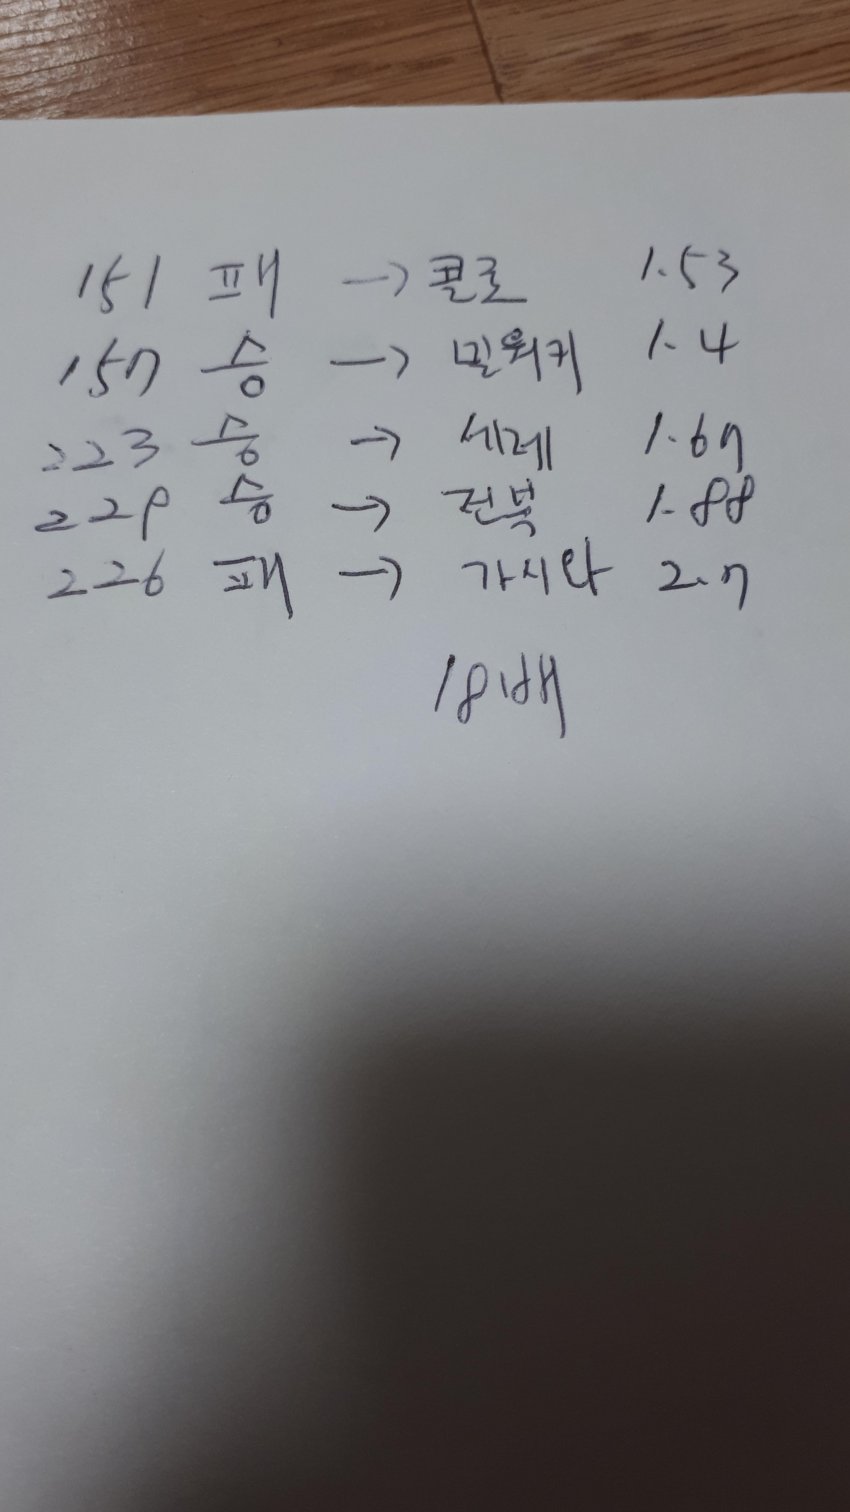 151 패 → 콜로 1.53
157 승 → 밀워키 1.4
223 승 → 세레 1.67
229 승 → 전북 1.88
226 패 → 가시와 2.7
18배